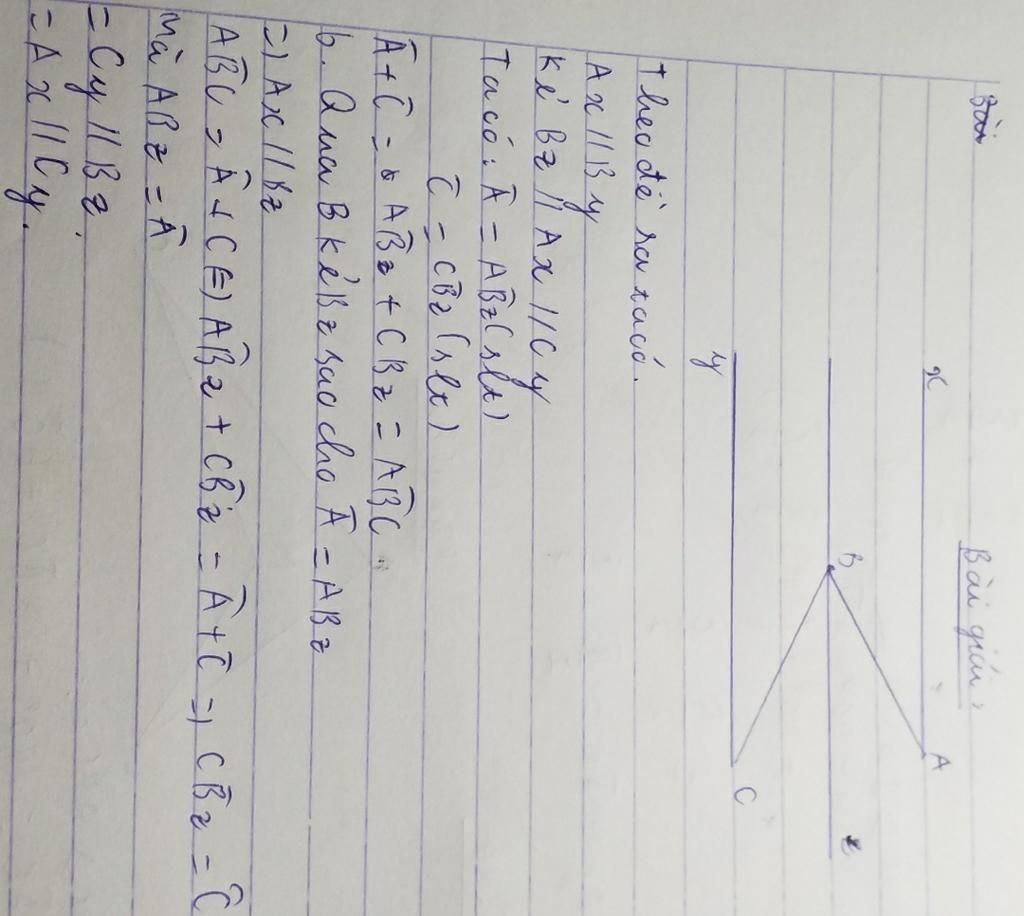 Bài
Bài giải:
x
A
B
z
y
C
Theo đề ra ta có.
Ax // By
Kẻ Bz // Ax // Cy
Ta có: Â = AB̂z (slt)
Ĉ = CB̂z (slt)
Â + Ĉ = AB̂z + CBz = AB̂C.
b. Qua B kẻ Bz sao cho Â = ABz
=) Ax // Bz
AB̂C = Â + C (=) AB̂z + CB̂z = Â + Ĉ =) CB̂z = Ĉ
Mà ABz = Â
= Cy // Bz.
= Ax // Cy.